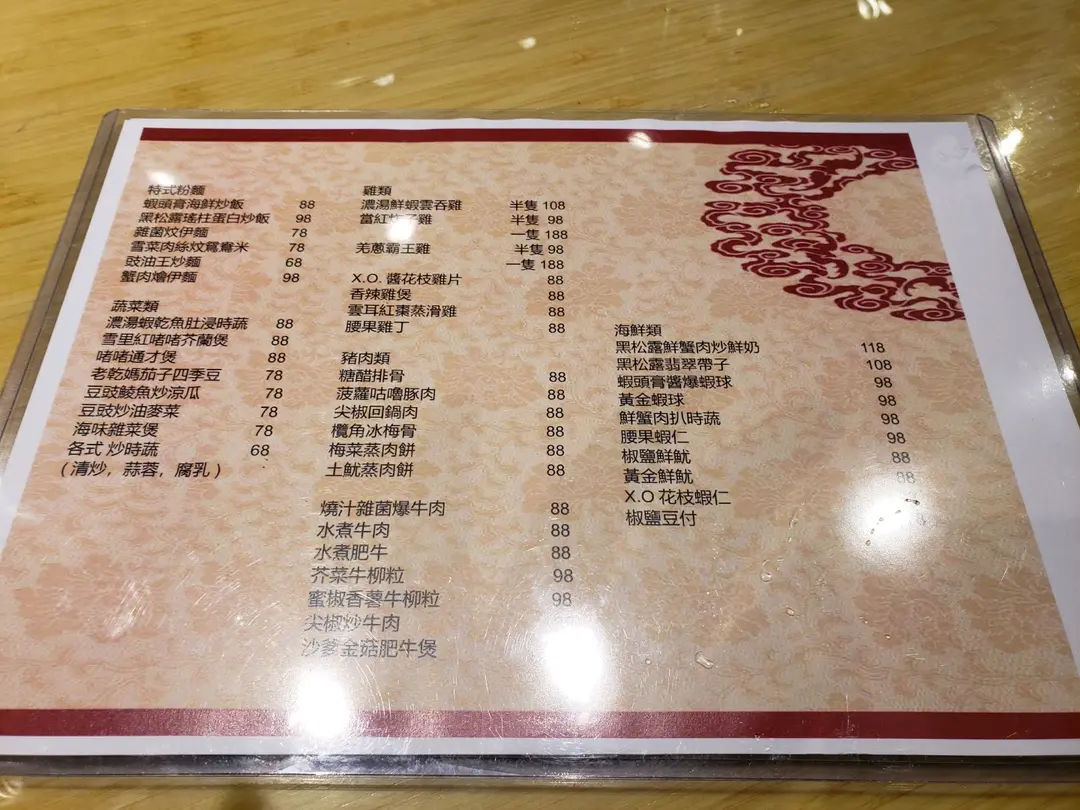 特式粉麵
蝦頭膏海鮮炒飯 88
黑松露瑤柱蛋白炒飯 98
雜菌炆伊麵 78
雪菜肉絲炆鴛鴦米 78
豉油王炒麵 68
蟹肉燴伊麵 98
蔬菜類
濃湯蝦乾魚肚浸時蔬 88
雪里紅啫啫芥蘭煲 88
啫啫通才煲 88
老乾媽茄子四季豆 78
豆豉鯪魚炒涼瓜 78
豆豉炒油麥菜 78
海味雜菜煲 78
各式 炒時蔬 68
(清炒, 蒜蓉, 腐乳)
雞類
濃湯鮮蝦雲吞雞 半隻 108
當紅炸子雞 半隻 98
一隻 188
羌蔥霸王雞 半隻 98
一隻 188
X.O. 醬花枝雞片 88
香辣雞煲 88
雲耳紅棗蒸滑雞 88
腰果雞丁 88
豬肉類
糖醋排骨 88
菠蘿咕嚕豚肉 88
尖椒回鍋肉 88
欖角冰梅骨 88
梅菜蒸肉餅 88
土魷蒸肉餅 88
燒汁雜菌爆牛肉 88
水煮牛肉 88
水煮肥牛 88
芥菜牛柳粒 98
蜜椒香薯牛柳粒 98
尖椒炒牛肉
沙爹金菇肥牛煲
海鮮類
黑松露鮮蟹肉炒鮮奶 118
黑松露翡翠帶子 108
蝦頭膏醬爆蝦球 98
黃金蝦球 98
鮮蟹肉扒時蔬 98
腰果蝦仁 98
椒鹽鮮魷 88
黃金鮮魷 88
X.O 花枝蝦仁
椒鹽豆付